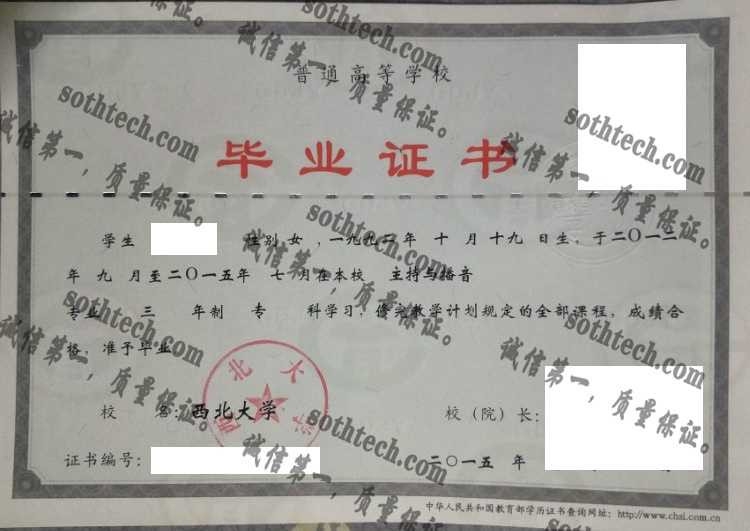 普通高等学校
毕业证书
学生 性别 女 , 一九九二年 十 月 十九 日生, 于二〇一二
年 九 月至二〇一五年 七 月在本校 主持与播音
专业 三 年制 专 科学习, 修完教学计划规定的全部课程, 成绩合
格, 准予毕业
校 名: 西北大学 校（院）长:
证书编号: 二〇一五 年
中华人民共和国教育部学历证书查询网址: http://www.chsi.com.cn
西北大学
sothtech.com
诚信第一，质量保证。
sothtech.com
诚信第一，质量保证。
sothtech.com
诚信第一，质量保证。
sothtech.com
诚信第一，质量保证。
sothtech.com
诚信第一，质量保证。
sothtech.com
诚信第一，质量保证。
sothtech.com